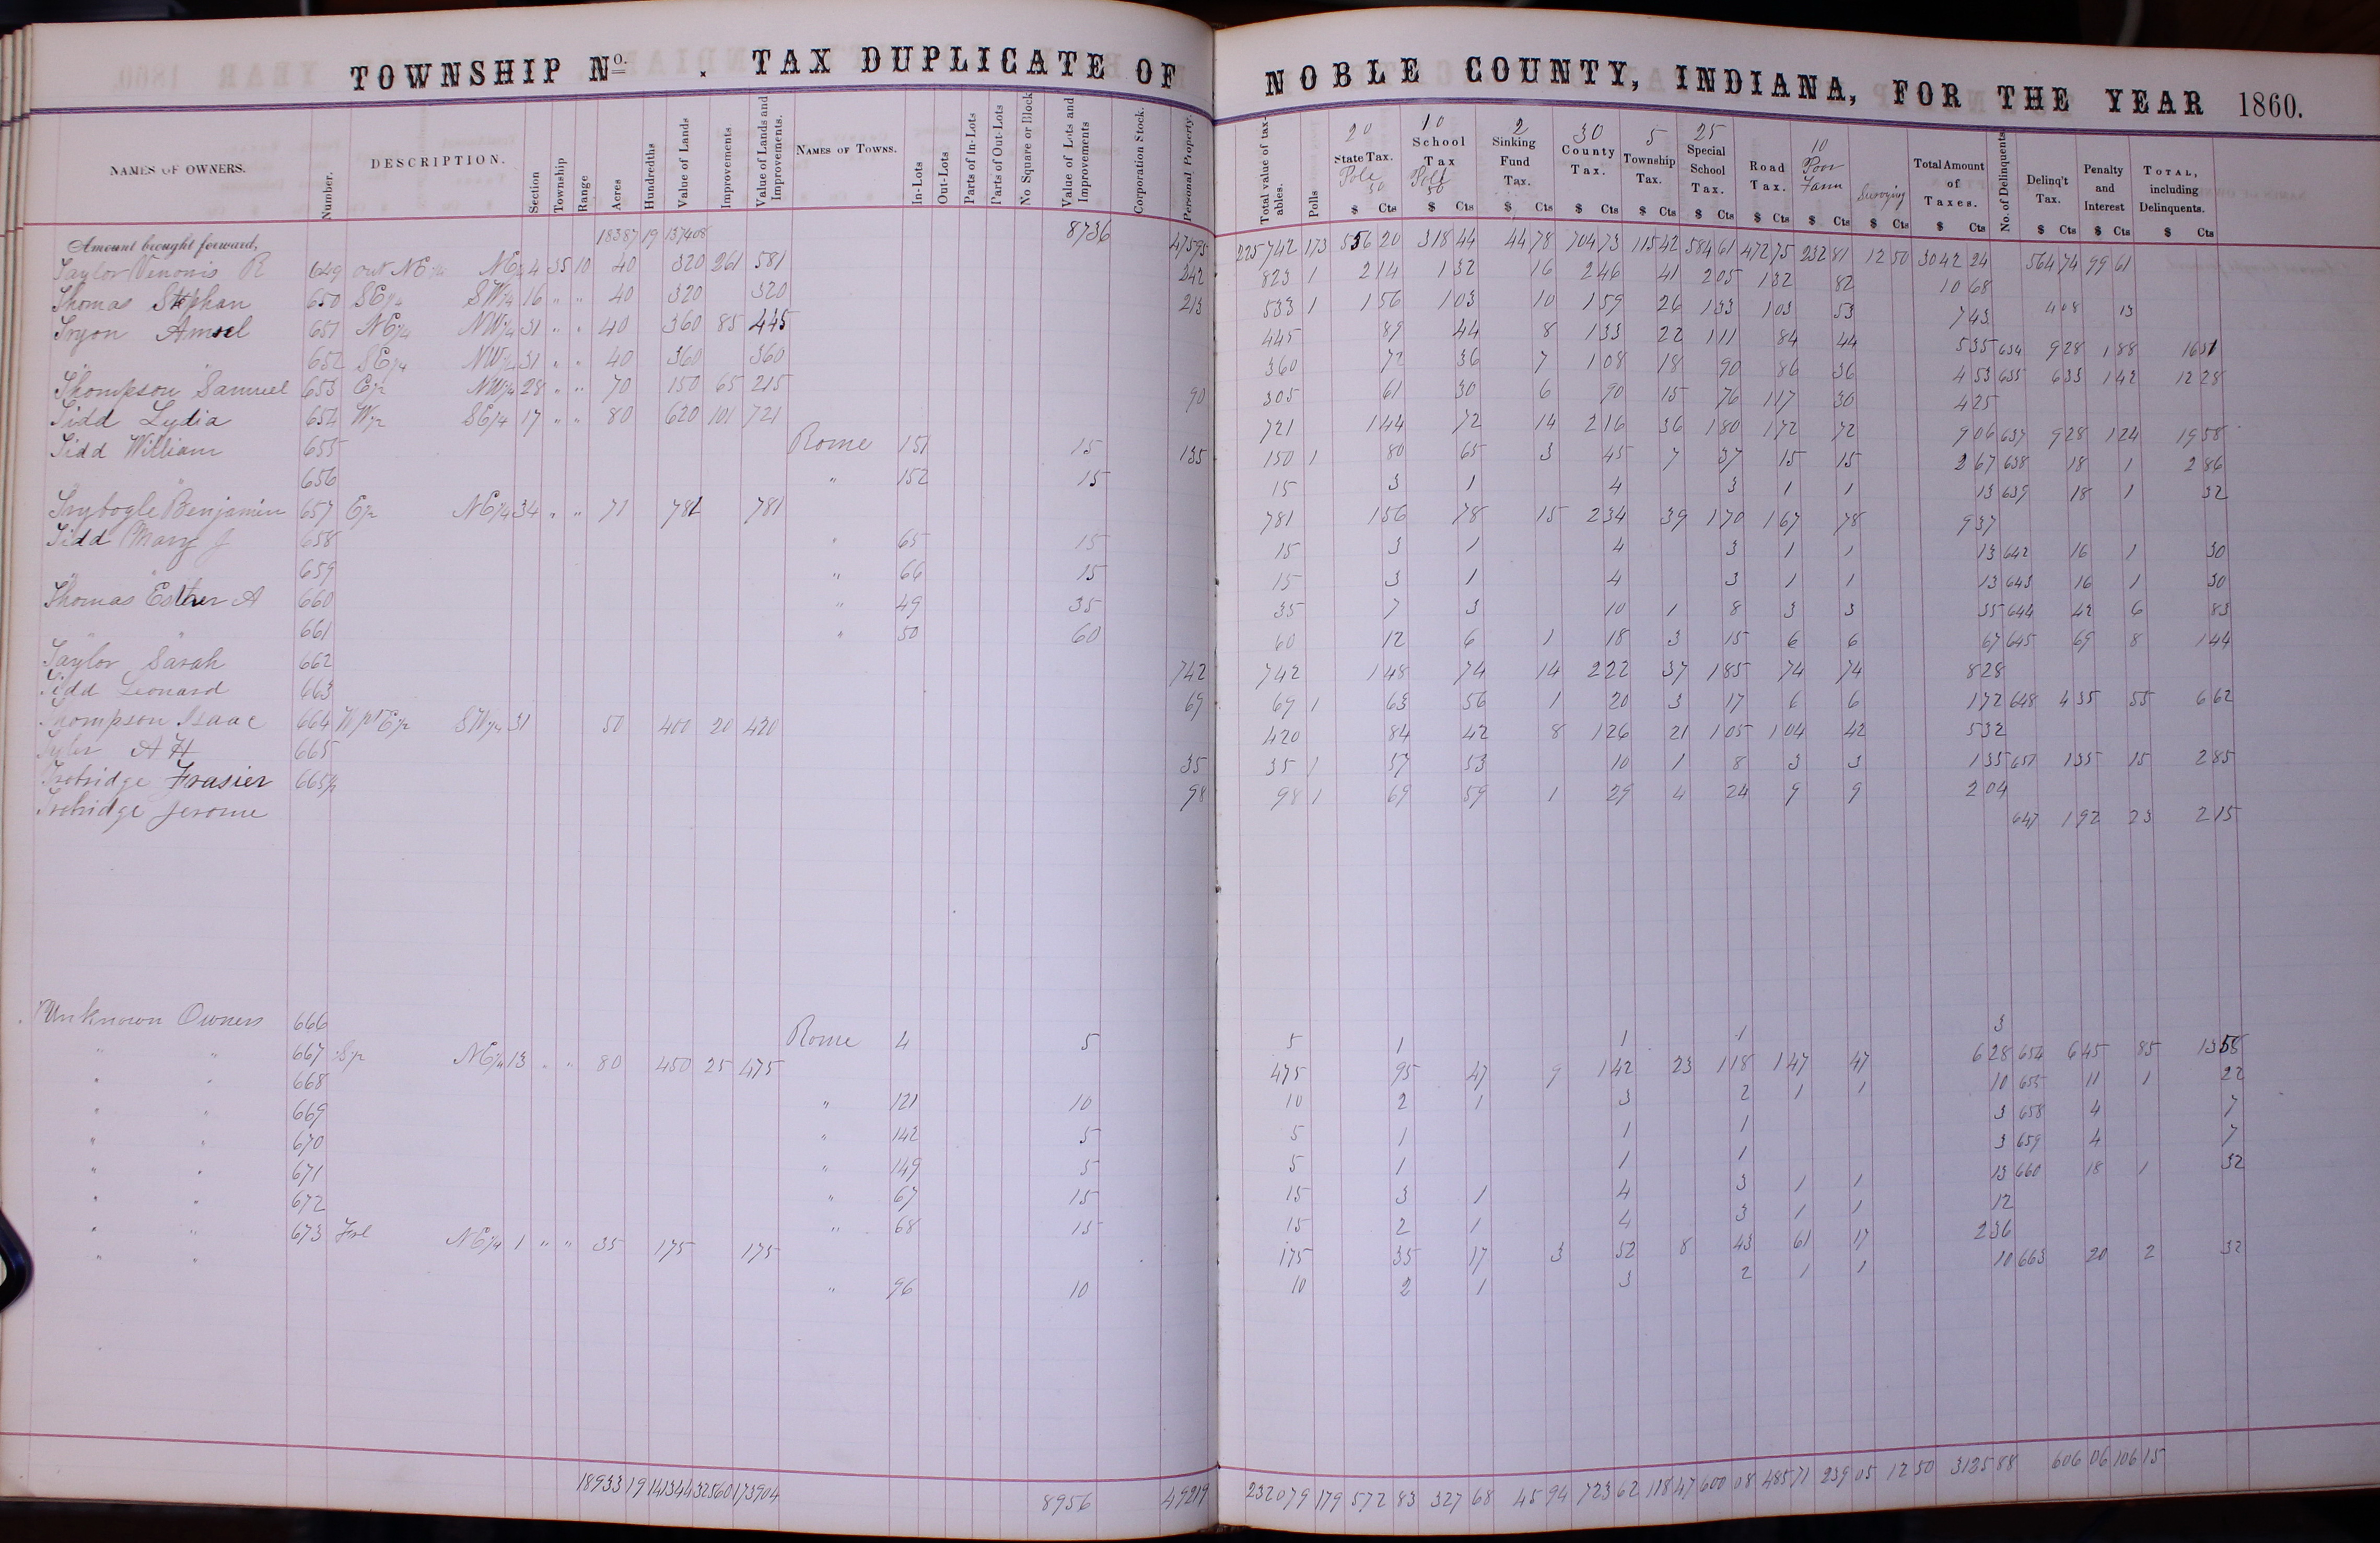 TOWNSHIP No. . TAX DUPLICATE OF NOBLE COUNTY, INDIANA, FOR THE YEAR 1860.
NAMES OF OWNERS. Number. DESCRIPTION. Section Township Range Acres Hundredths Value of Lands Improvements Value of Lands and Improvements. NAMES OF TOWNS. In-Lots Out-Lots Parts of In-Lots Parts of Out-Lots No Square or Block Value of Lots and Improvements Corporation Stock. Personal Property. Total value of taxables. Polls 20 State Tax. Pole 50 10 School Tax Poll 50 2 Sinking Fund Tax. 30 County Tax. 5 Township Tax. 25 Special School Tax. Road Tax. 10 Poor Farm Surveying Total Amount of Taxes. No. of Delinquents Delinq't Tax. Penalty and Interest TOTAL, including Delinquents.
$ Cts $ Cts $ Cts $ Cts $ Cts $ Cts $ Cts $ Cts $ Cts $ Cts $ Cts $ Cts $ Cts
Amount brought forward, 18387 19 137408 8736 47595 225742 173 556 20 318 44 44 78 704 73 115 42 584 61 472 75 232 81 12 50 3042 24 564 74 99 61
Taylor Venonis R 649 out NE1/4 NE1/4 4 35 10 40 320 261 581 242 823 1 2 14 1 32 16 2 46 41 2 05 1 32 82 10 68
Thomas Stephan 650 SE1/4 SW1/4 16 " " 40 320 320 213 533 1 1 56 1 03 10 1 59 26 1 33 1 03 53 7 43 4 08 13
Tryon Amsel 651 NE1/4 NW1/4 31 " " 40 360 85 445 445 89 44 8 1 33 22 1 11 84 44 5 35 634 9 28 1 88 16 51
" " 652 SE1/4 NW1/4 31 " " 40 360 360 360 72 36 7 1 08 18 90 86 36 4 53 635 6 33 1 42 12 28
Thompson Samuel 653 E1/2 NW1/4 28 " " 70 150 65 215 90 305 61 30 6 90 15 76 1 17 30 4 25
Tidd Lydia 654 W1/2 SE1/4 17 " " 80 620 101 721 721 1 44 72 14 2 16 36 1 80 1 72 72 9 06 637 9 28 1 24 19 58
Tidd William 655 Rome 151 15 135 150 1 80 65 3 45 7 37 15 15 2 67 638 18 1 2 86
" " 656 " 152 15 15 3 1 4 3 1 1 13 639 18 1 32
Trybogle Benjamin 657 E1/2 NE1/4 34 " " 71 781 781 781 1 56 78 15 2 34 39 1 70 1 67 78 9 37
Tidd Mary J 658 " 65 15 15 3 1 4 3 1 1 13 642 16 1 30
" " 659 " 66 15 15 3 1 4 3 1 1 13 643 16 1 30
Thomas Esther A 660 " 49 35 35 7 3 10 1 8 3 3 35 644 42 6 83
" " 661 " 50 60 60 12 6 1 18 3 15 6 6 67 645 69 8 1 44
Taylor Sarah 662 742 742 1 48 74 14 2 22 37 1 85 74 74 8 28
Tidd Leonard 663 69 69 1 63 56 1 20 3 17 6 6 1 72 648 4 35 55 6 62
Thompson Isaac 664 W pt E1/2 SW1/4 31 50 400 20 420 420 84 42 8 1 26 21 1 05 1 04 42 5 32
Tyler A H 665 35 35 1 57 53 10 1 8 3 3 1 35 651 1 35 15 2 85
Trobridge Frasier 665 1/2 98 98 1 69 59 1 29 4 24 9 9 2 04
Trobridge Jerome 647 1 92 23 2 15
Unknown Owners 666 Rome 4 5 5 1 1 1 3
" " 667 S1/2 NE1/4 13 " " 80 450 25 475 475 95 47 9 1 42 23 1 18 1 47 47 6 28 654 6 45 85 13 58
" " 668 " 121 10 10 2 1 3 2 1 1 10 655 11 1 22
" " 669 " 142 5 5 1 1 1 3 658 4 7
" " 670 " 149 5 5 1 1 1 3 659 4 7
" " 671 " 67 15 15 3 1 4 3 1 1 13 660 18 1 32
" " 672 " 68 15 15 2 1 4 3 1 1 12
" " 673 Frl NE1/4 1 " " 35 175 175 175 35 17 3 52 8 43 61 17 2 36
" " " 96 10 10 2 1 3 2 1 1 10 663 20 2 32
18933 19 141344 32560 173904 8956 49219 232079 179 572 83 327 68 45 94 723 62 118 47 600 08 485 71 239 05 12 50 3125 88 606 06 106 15